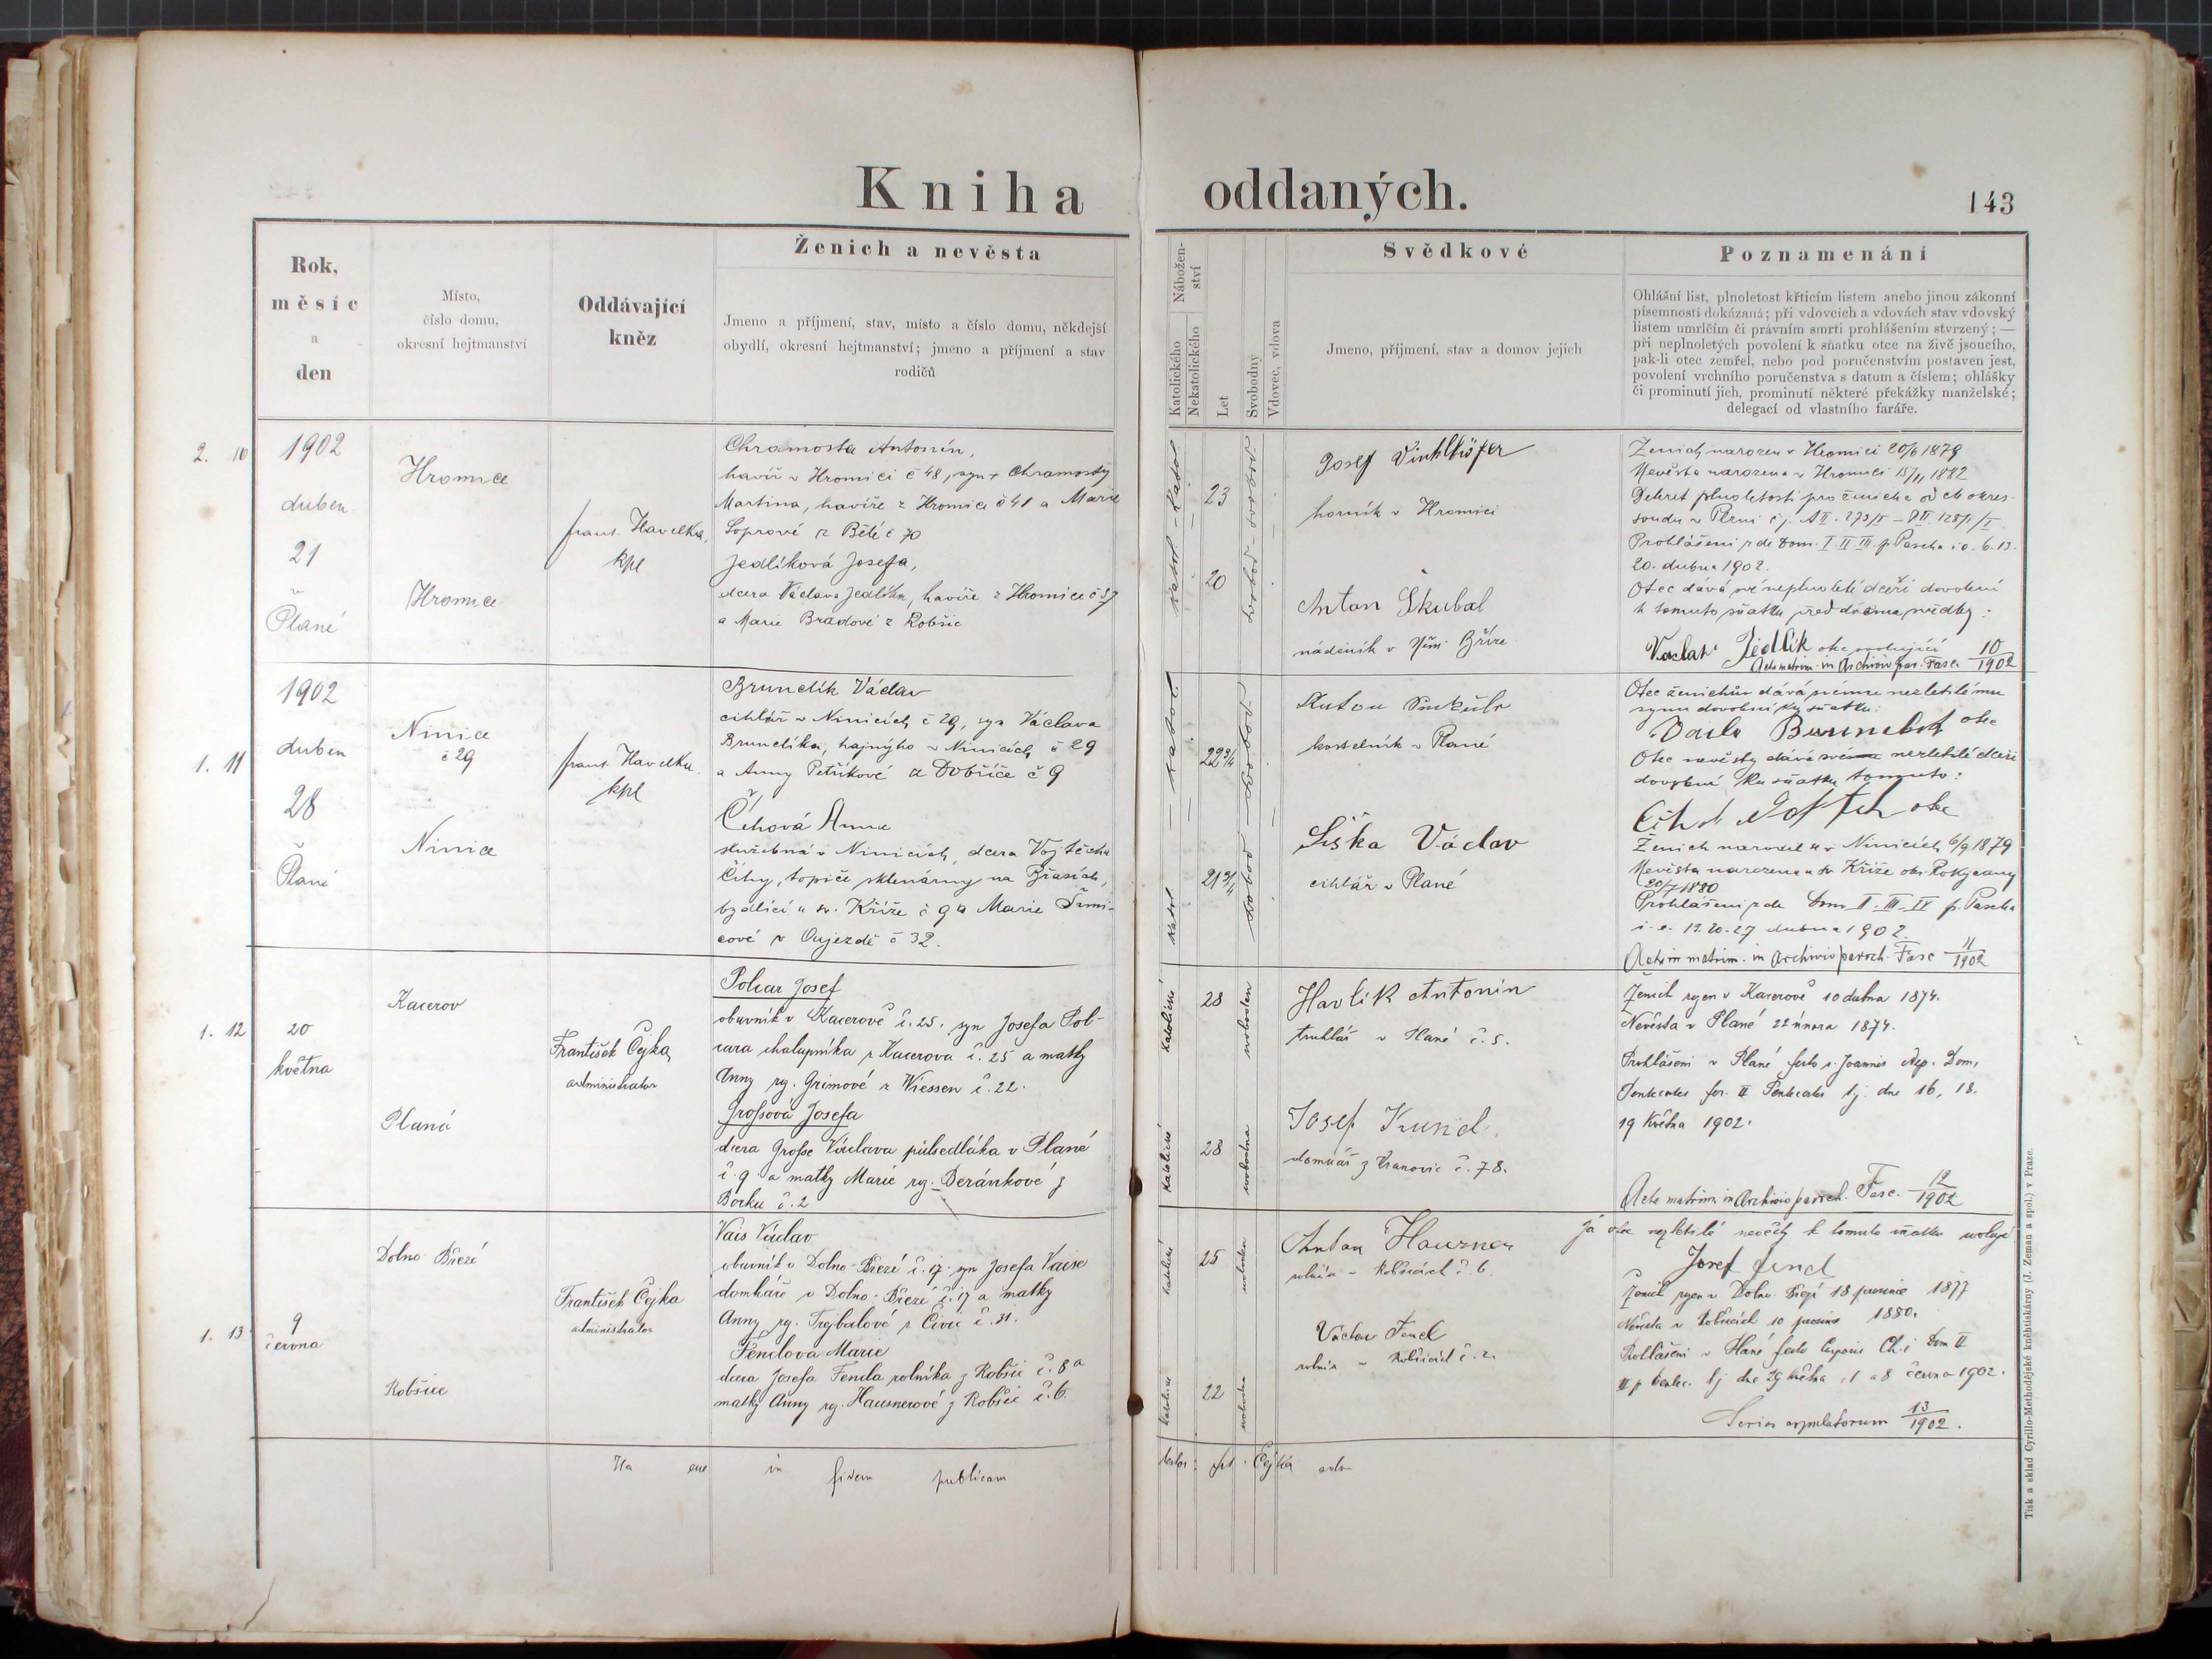 Kniha oddaných.
143
Rok,
měsíc
a
den
Místo,
číslo domu,
okresní hejtmanství
Oddávající
kněz
Ženich a nevěsta
Jmeno a příjmení, stav, místo a číslo domu, někdejší
obydlí, okresní hejtmanství; jmeno a příjmení a stav
rodičů
Nábožen-
ství
Katolického
Nekatolického
Let
Svobodný
Vdovec, vdova
Svědkové
Jmeno, příjmení, stav a domov jejich
Poznamenání
Ohlášní list, plnoletost křticím listem anebo jinou zákonní
písemností dokázaná; při vdovcích a vdovách stav vdovský
listem umrlčím či právním smrti prohlášením stvrzený; —
při neplnoletých povolení k sňatku otce na živě jsoucího,
pak-li otec zemřel, nebo pod poručenstvím postaven jest,
povolení vrchního poručenstva s datum a číslem; ohlášky
či prominutí jich, prominutí některé překážky manželské;
delegací od vlastního faráře.
2. 10
1902
duben
21
Plané
Hromice
Hromice
frant. Havelka,
kpl
Chramosta Antonín,
havíř v Hromici č 48, syn + Chramosty
Martina, havíře z Hromice č 41 a Marie
Soprové z Bělé č 70
Jedlíková Josefa,
dcera Václava Jedlíka, havíře z Hromice č 57
a Marie Bradové z Robšic
katol. - katol.
23
20
svobod - svobod.
Josef Vinklhöfer
horník v Hromici
Anton Škubal
nádeník v Něm. Bříze
Ženich narozen v Hromici 20/6 1879
Nevěsta narozena v Hromici 15/11 1882
Dekret plnoletosti pro ženicha od ck okres.
soudu v Plzni
Prohlášení
20. dubna 1902.
Otec dává své neplnoleté dceři dovolení
k tomuto sňatku před dvěma svědky:
Vaclav Jedlík otec svolující
Acta matrim. in Archivio par. Fasc. 10/1902
1. 11
1902
duben
28
Plané
Ninice
č 29
Ninice
frant. Havelka.
kpl
Brunclík Václav
cihlář v Ninicích č 29, syn Václava
Brunclíka, hajného v Ninicích č 29
a Anny Petříkové z Dobříče č 9
Číhová Anna
služebná v Ninicích, dcera Vojtěcha
Číhy, topiče sklenárny na Břasích,
bydlící u sv. Kříže č 9 a Marie Šimi-
cové v Oujezdě č 32.
katol - katol
22 3/4
21 3/4
svobod - svobod
Anton
kostelník v Plané
Šiška Václav
cihlář v Plané
Otec ženichův dává svému nezletilému
synu dovolení ku sňatku:
otec
Otec nevěsty dává své nezletilé dceři
dovolení ku sňatku tomuto:
otec
Ženich narozen v Ninicích 6/9 1879
Nevěsta narozena u sv. Kříže okr. Rokycany
20/7 1880
Prohlášení p. de Dom. II. III. IV p. Pascha
i. e. 13. 20. 27 dubna 1902.
Acta matrim. in Archivio paroch. Fasc 11/1902
1. 12
20
května
Kacerov
Planá
František Čejka,
administrator
Polcar Josef
obuvník v Kacerově č. 25. syn Josefa Pol-
cara chalupníka z Kacerova č. 25 a matky
Anny roz. Grimové z Wiessen č. 22.
Grossova Josefa
dcera Grosse Václava půlsedláka v Plané
č. 9 a matky Marie roz. Beránkové z
Borku č. 2
katolické
katolické
28
28
svoboden
svobodna
Havlík Antonin
truhlář v Plané č. 5.
Josef Kund.
domkář z Kranovic č. 78.
Ženich rozen v Kacerově 10 dubna 1874.
Nevěsta v Plané 22 února 1874.
Prohlášeni v Plané festo s. Joannis Nep. Dom.
Pentecostes fer. II Pentecostes tj. dne 16, 18.
19 května 1902.
Acta matrim. in Archivio paroch. Fasc. 12/1902
1. 13
9
června
Dolno-Březí
Robšice
František Čejka
administrator
Vais Václav
obuvník v Dolno-Březí č. 17. syn Josefa Vaise
domkáře v Dolno-Březí č. 17 a matky
Anny roz. Trybalové z Čivic č. 31.
Fenclova Marie
dcera Josefa Fencla rolníka z Robšic č. 8 a
matky Anny roz. Hausnerové z Robšic č. 6.
25
22
Anton Hauzner
rolník v Robšicích č. 6.
Václav Fencl
rolník v Robšicích č. 2.
Já otec nezletilé nevěsty k tomuto sňatku svoluji
Josef Fencl
Ženich rozen v Dolno-Březí 18 prosince 1877
Nevěsta v Robšicích 10 prosince 1880.
Prohlášeni v Plané festo Corporis Ch. i Dom II
III p. Pentec. tj dne 29 května, 1 a 8 června 1902.
Series copulatorum 13/1902.
in fidem publicam
Čejka adm
Tisk a sklad Cyrillo-Methodějské kněhtiskárny (J. Zeman a spol.) v Praze.